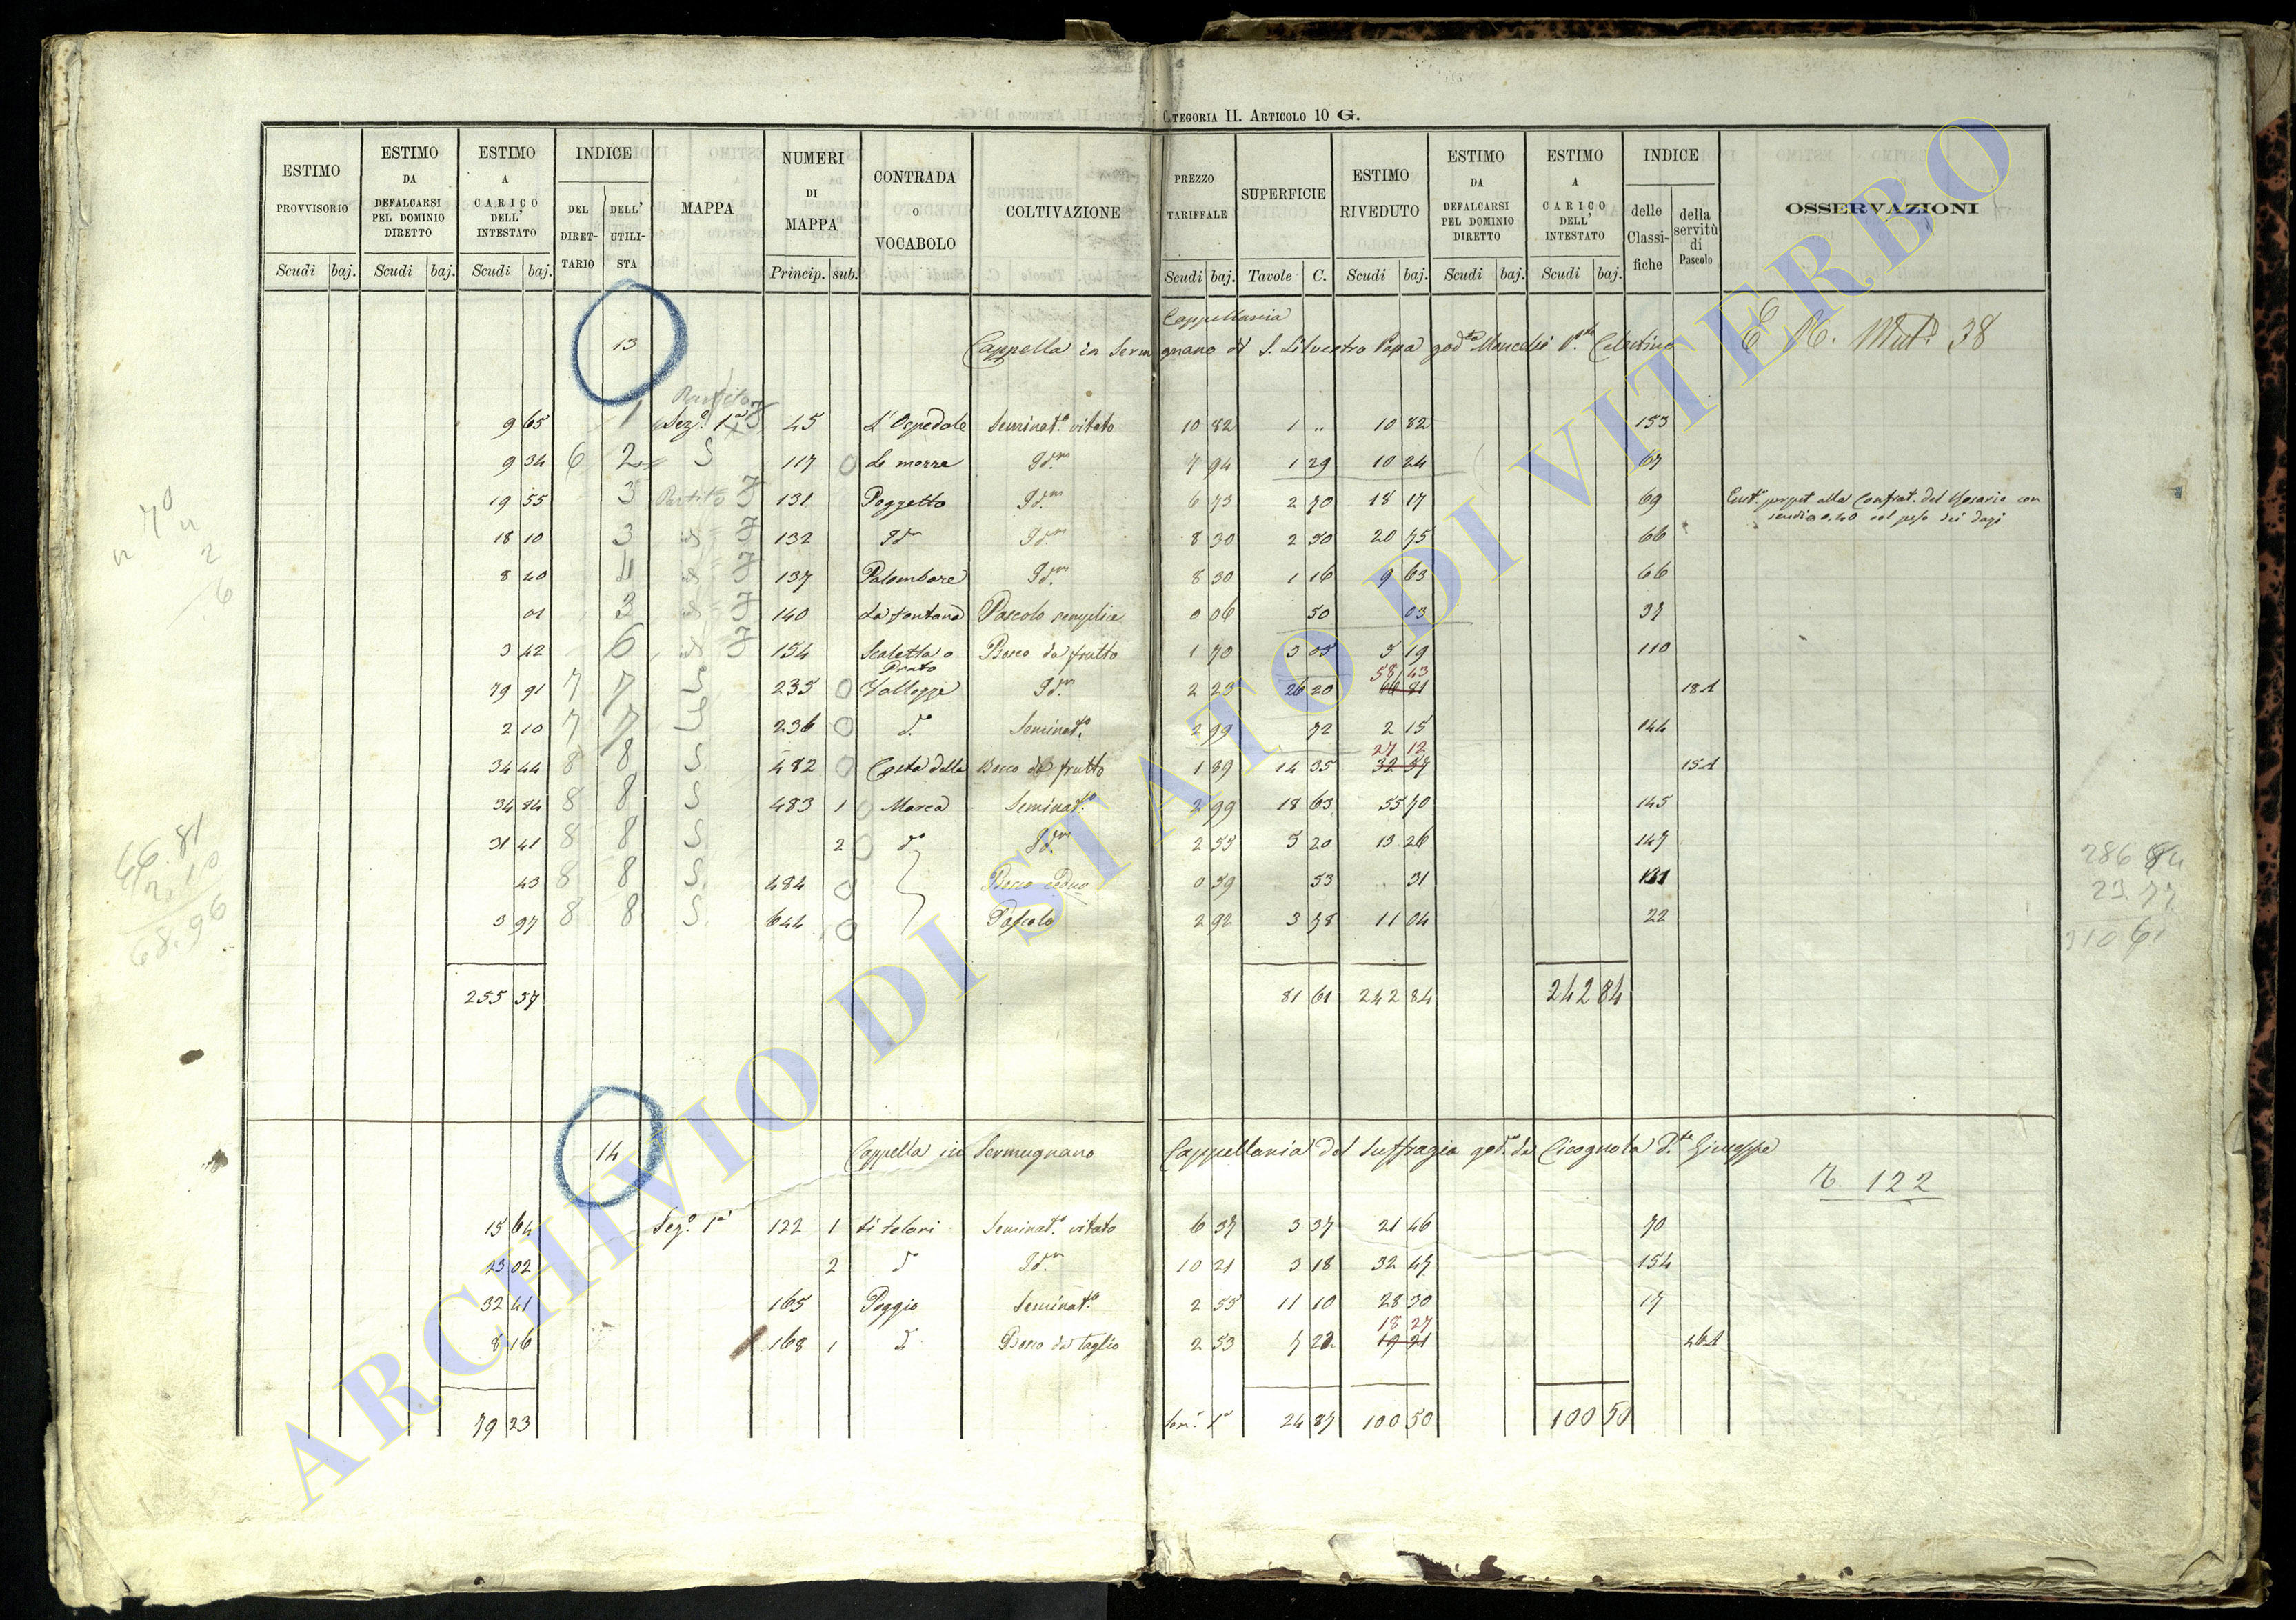 CATEGORIA II. ARTICOLO 10 G.
ESTIMO PROVVISORIO Scudi baj.
ESTIMO DA DEFALCARSI PEL DOMINIO DIRETTO Scudi baj.
ESTIMO A CARICO DELL' INTESTATO Scudi baj.
INDICE DEL DIRETTARIO DELL' UTILISTA
MAPPA
NUMERI DI MAPPA Princip. sub.
CONTRADA o VOCABOLO
COLTIVAZIONE
PREZZO TARIFFALE Scudi baj.
SUPERFICIE Tavole C.
ESTIMO RIVEDUTO Scudi baj.
ESTIMO DA DEFALCARSI PEL DOMINIO DIRETTO Scudi baj.
ESTIMO A CARICO DELL' INTESTATO Scudi baj.
INDICE delle Classifiche della servitù di Pascolo
OSSERVAZIONI
Cappellania
13 Cappella in Sermugnano di S. Silvestro Papa god.ta Celestino 38
Partito
9 65 1 Sez.e 1a 45 L'Ospedale Seminat.o vitato 10 82 1 " 10 82 153
9 34 6 2 S 117 0 Le morre Id.m 7 94 1 29 10 24 67
19 55 3 Partito 131 Poggetto Id.m 6 73 2 70 18 17 69 perpet alla Confrat. del Rosario con
scudi 0,40 col peso dei dazi
18 10 3 132 Id.m Id.m 8 30 2 50 20 75 66
8 40 4 137 Palombare Id.m 8 30 1 16 9 63 66
01 3 140 La fontana Pascolo semplice 0 06 50 03 37
3 42 6 154 Scaletta o Prato Bosco da frutto 1 70 3 05 5 19 110
58 43
79 91 7 7 S 235 0 Valloppe Id.m 2 23 26 20 66 81 18A
2 10 7 7 S 236 0 d.o Seminat.o 2 99 72 2 15 144
27 12
34 44 8 8 S 482 0 Costa della Bosco da frutto 1 89 14 35 32 57 15A
34 84 8 8 S 483 1 0 Marca Seminat.o 2 99 18 63 55 70 145
31 41 8 8 S 2 0 d.o Id.m 2 55 5 20 13 26 147
43 8 8 S. 484 0 Bosco ceduo 0 59 53 31 131
3 97 8 8 S. 644 0 Pascolo 2 92 3 78 11 04 22
255 57 81 61 242 84 242 84
14 Cappella in Sermugnano Cappellania del Suffragio god.a da Cicognola D. Giuseppe
R. 122
15 64 Sez.e 1a 122 1 Li telari Seminat.o vitato 6 37 3 37 21 46 70
23 02 2 d Id.m 10 21 3 18 32 47 154
32 41 165 Poggio Seminat.o 2 55 11 10 28 30 17
18 27
8 16 168 1 d Bosco da taglio 2 53 7 22 19 21 46A
79 23 24 87 100 50 100 50
66.81
2.10
68.96
286 84
23 77
310 61
ARCHIVIO DI STATO DI VITERBO